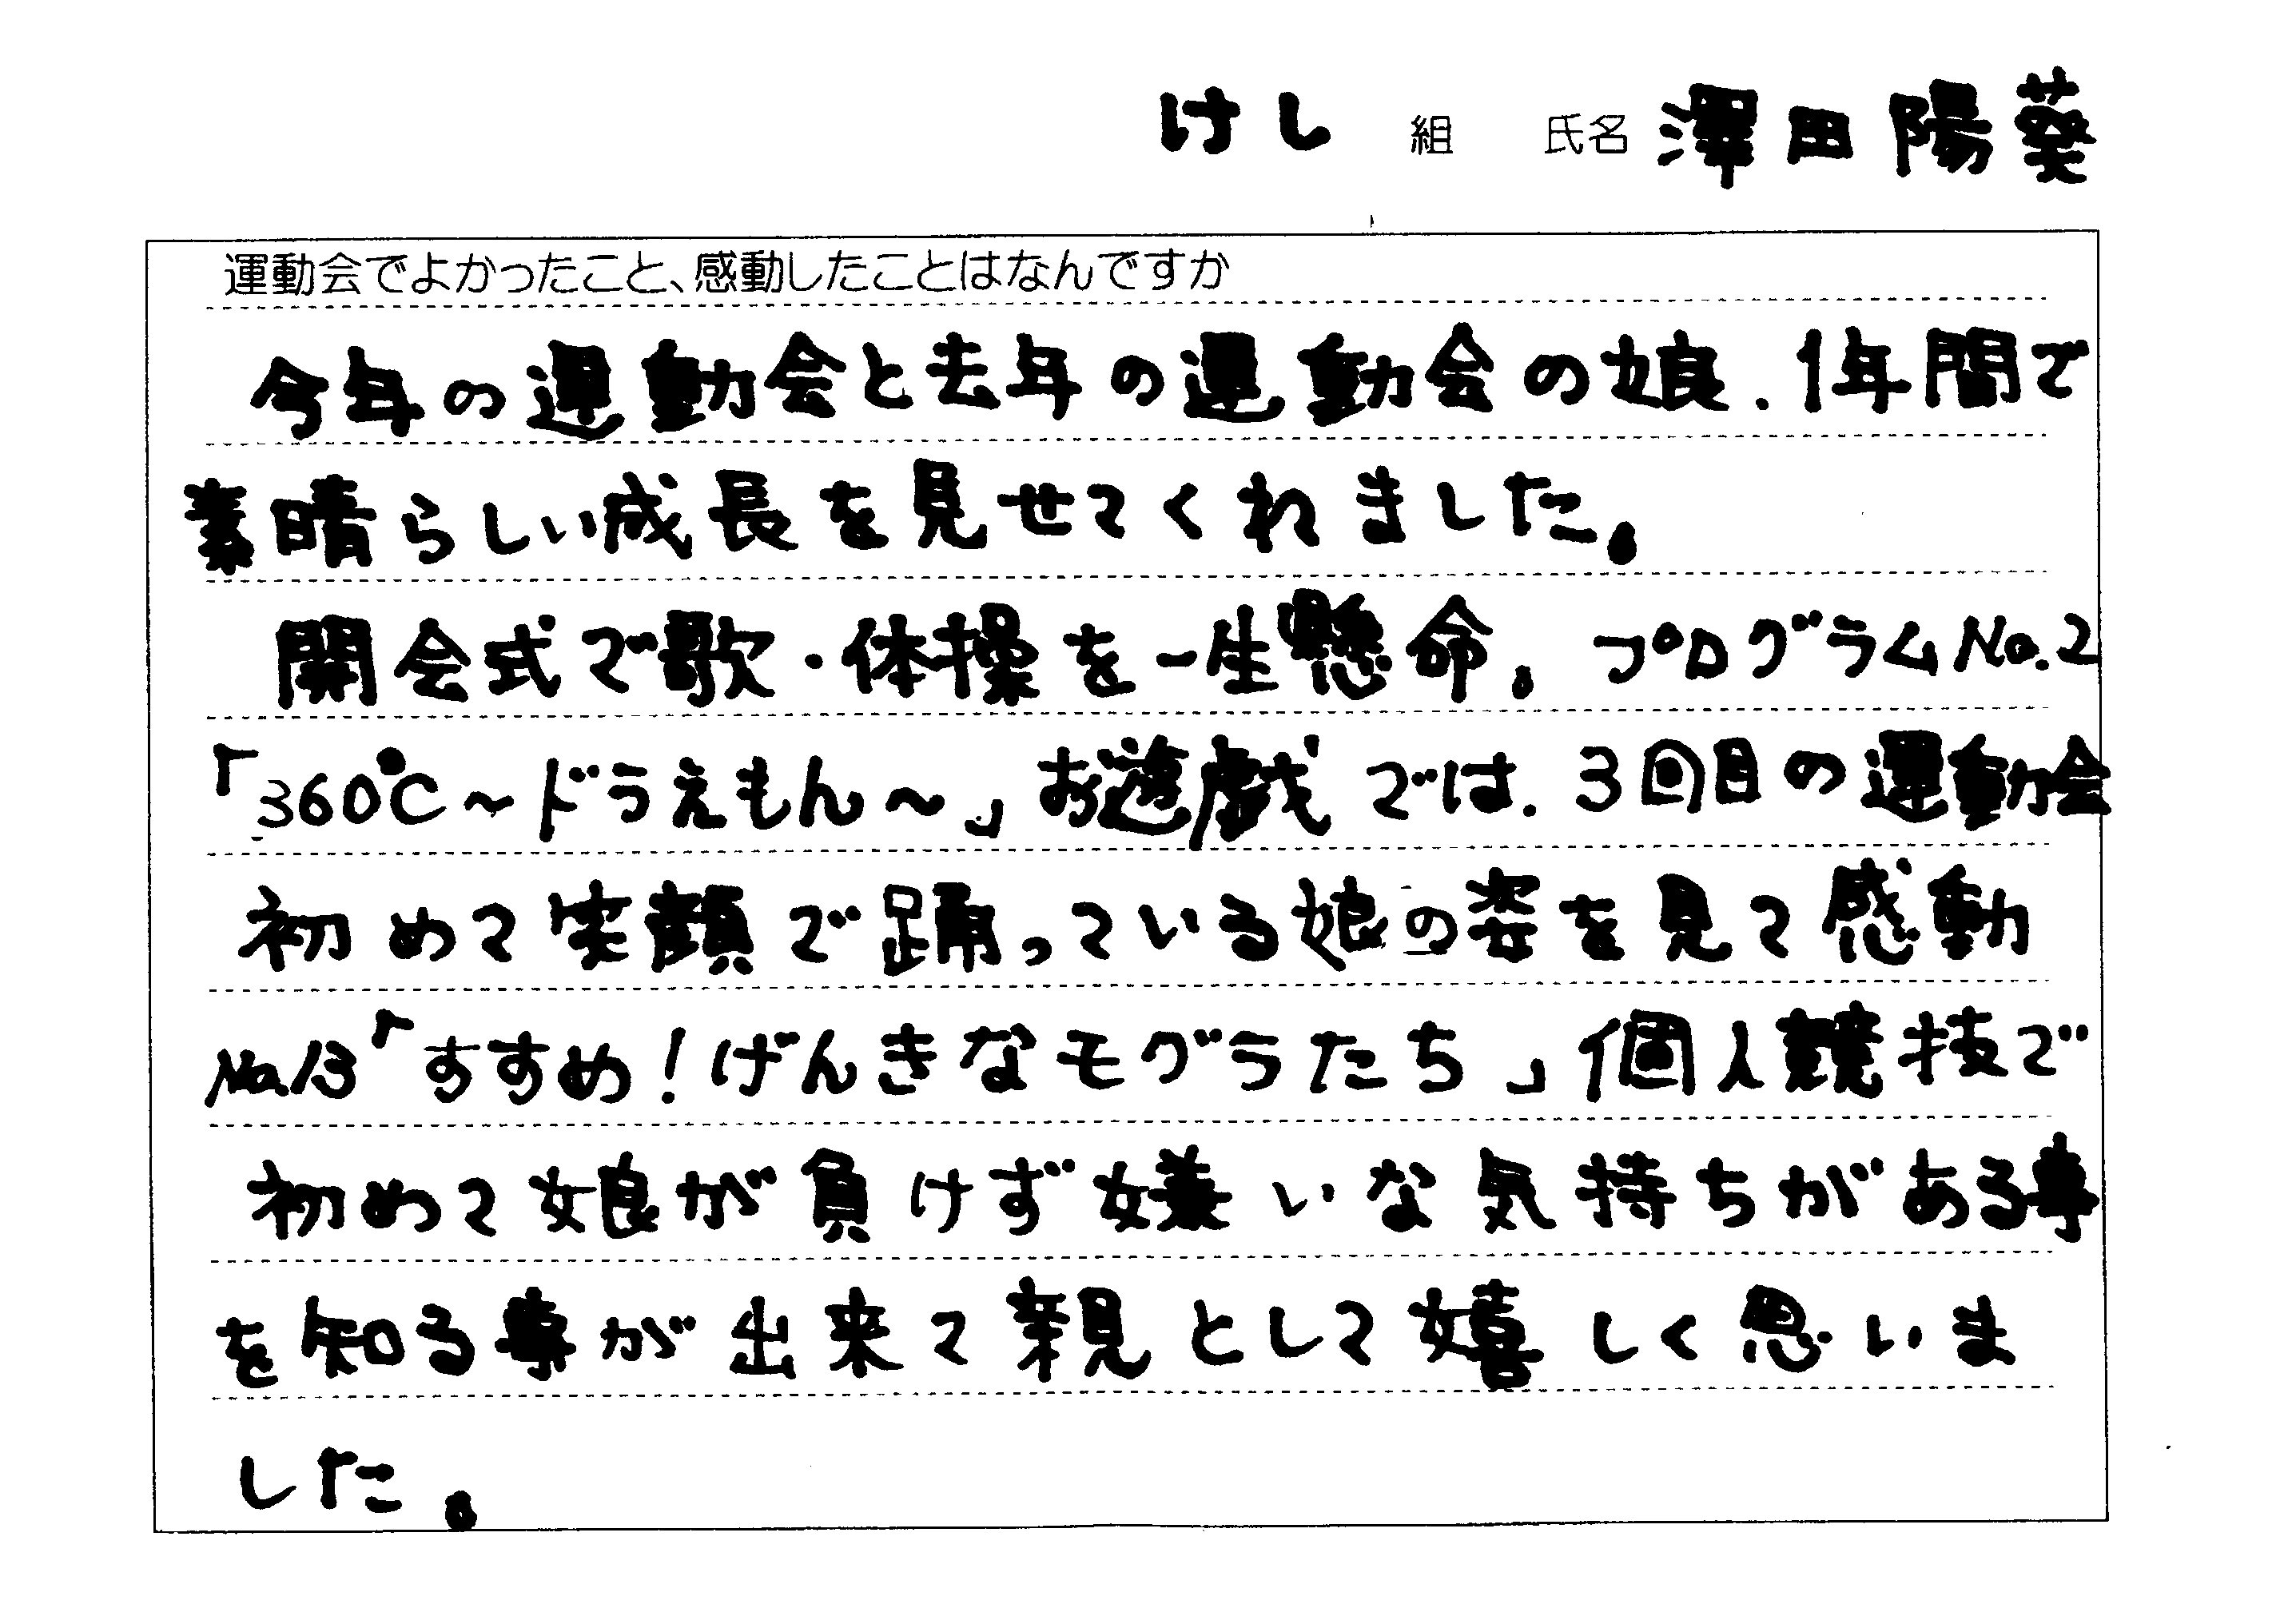 けし 組 氏名 澤田陽葵
運動会でよかったこと、感動したことはなんですか
今年の運動会と去年の運動会の娘、1年間で
素晴らしい成長を見せてくれました。
開会式で歌・体操を一生懸命。プログラムNo.2
「360℃～ドラえもん～」お遊戯では、3回目の運動会
初めて笑顔で踊っている娘の姿を見て感動
No.13「すすめ!げんきなモグラたち」個人競技で
初めて娘が負けず嫌いな気持ちがある事
を知る事が出来て親として嬉しく思いま
した。